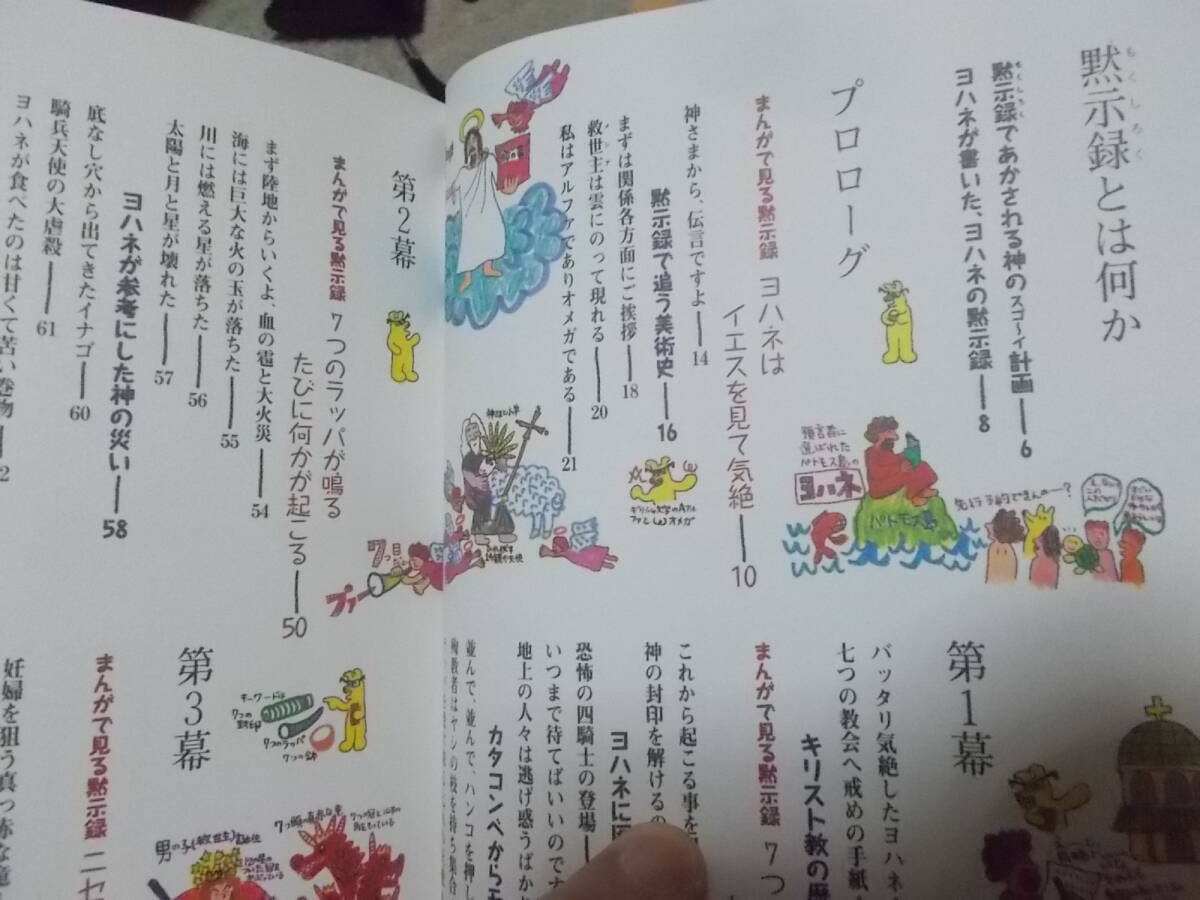 黙示録とは何か
もくしろく
黙示録であかされる神のスゴ～イ計画——6
もくしろく
ヨハネが書いた、ヨハネの黙示録——8
プロローグ
まんがで見る黙示録 ヨハネは
イエスを見て気絶——10
神さまから、伝言ですよ——14
黙示録で追う美術史——16
まずは関係各方面にご挨拶——18
救世主は雲にのって現れる——20
メシア
私はアルファでありオメガである——21
預言者に
選ばれた
パトモス島の
ヨハネ
パトモス島
ギリシャ文字のAアル
ファとωオメガ
第1幕
バッタリ気絶したヨハネ
七つの教会へ戒めの手紙
キリスト教の歴
まんがで見る黙示録 7つ
これから起こる事を
神の封印を解ける
ヨハネに
恐怖の四騎士の登場
いつまで待てばいいのです
地上の人々は逃げ惑うばか
カタコンベから
並んで、並んで、ハンコを押し
殉教者はヤシの枝を持ち集合
第2幕
まんがで見る黙示録 7つのラッパが鳴る
たびに何かが起こる——50
まず陸地からいくよ、血の雹と大火災——54
海には巨大な火の玉が落ちた——55
川には燃える星が落ちた——56
太陽と月と星が壊れた——57
ヨハネが参考にした神の災い——58
底なし穴から出てきたイナゴ——60
騎兵天使の大虐殺——61
ヨハネが食べたのは甘くて苦い巻物——2
7つ目
プァー
第3幕
まんがで見る黙示録 ニセ
妊婦を狙う真っ赤な竜
キーワードは
7つの封印
7つのラッパ
7つの鉢
男の子(救世主)